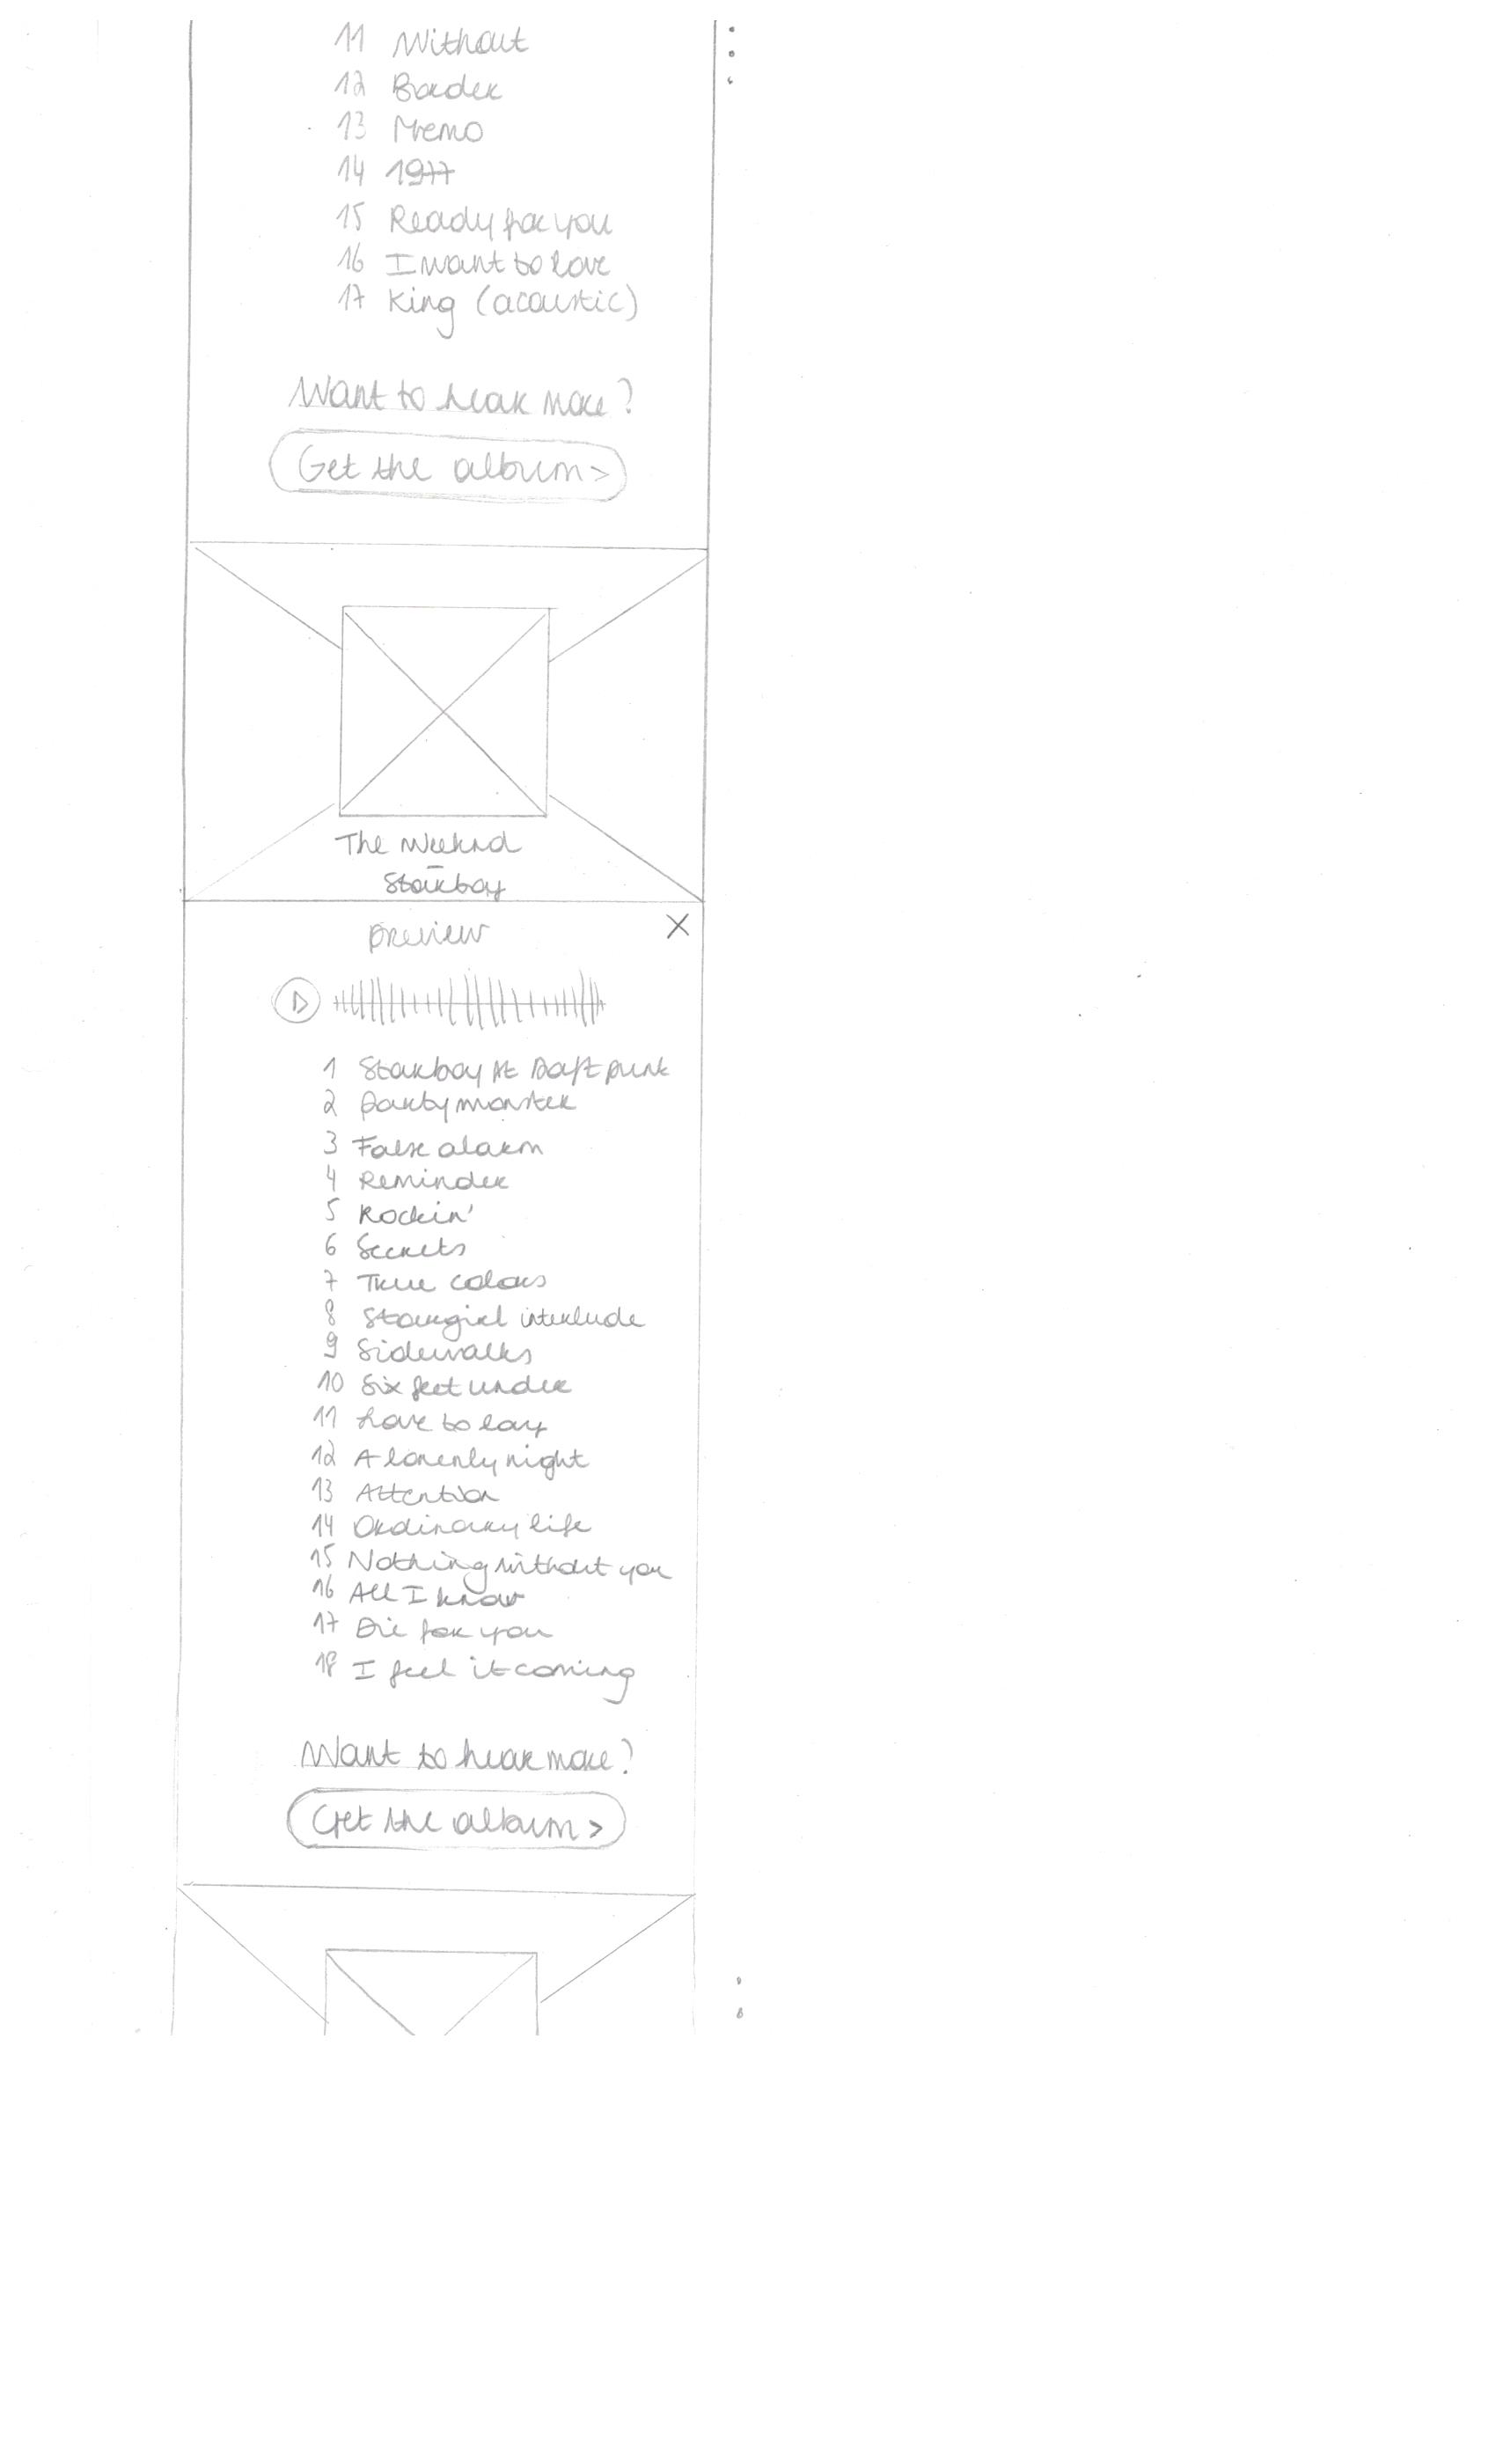 11 Without
12 Border
13 Memo
14 1977
15 Ready for you
16 I want to love
17 King (acoustic)
Want to hear more?
Get the album >
The Weeknd
-
Starboy
preview
X
1 Starboy ft Daft punk
2 Party monster
3 False alarm
4 Reminder
5 Rockin'
6 Secrets
7 True colors
8 Stargirl interlude
9 Sidewalks
10 Six feet under
11 Love to lay
12 A lonenly night
13 Attention
14 Ordinary life
15 Nothing without you
16 All I know
17 Die for you
18 I feel it coming
Want to hear more?
Get the album >